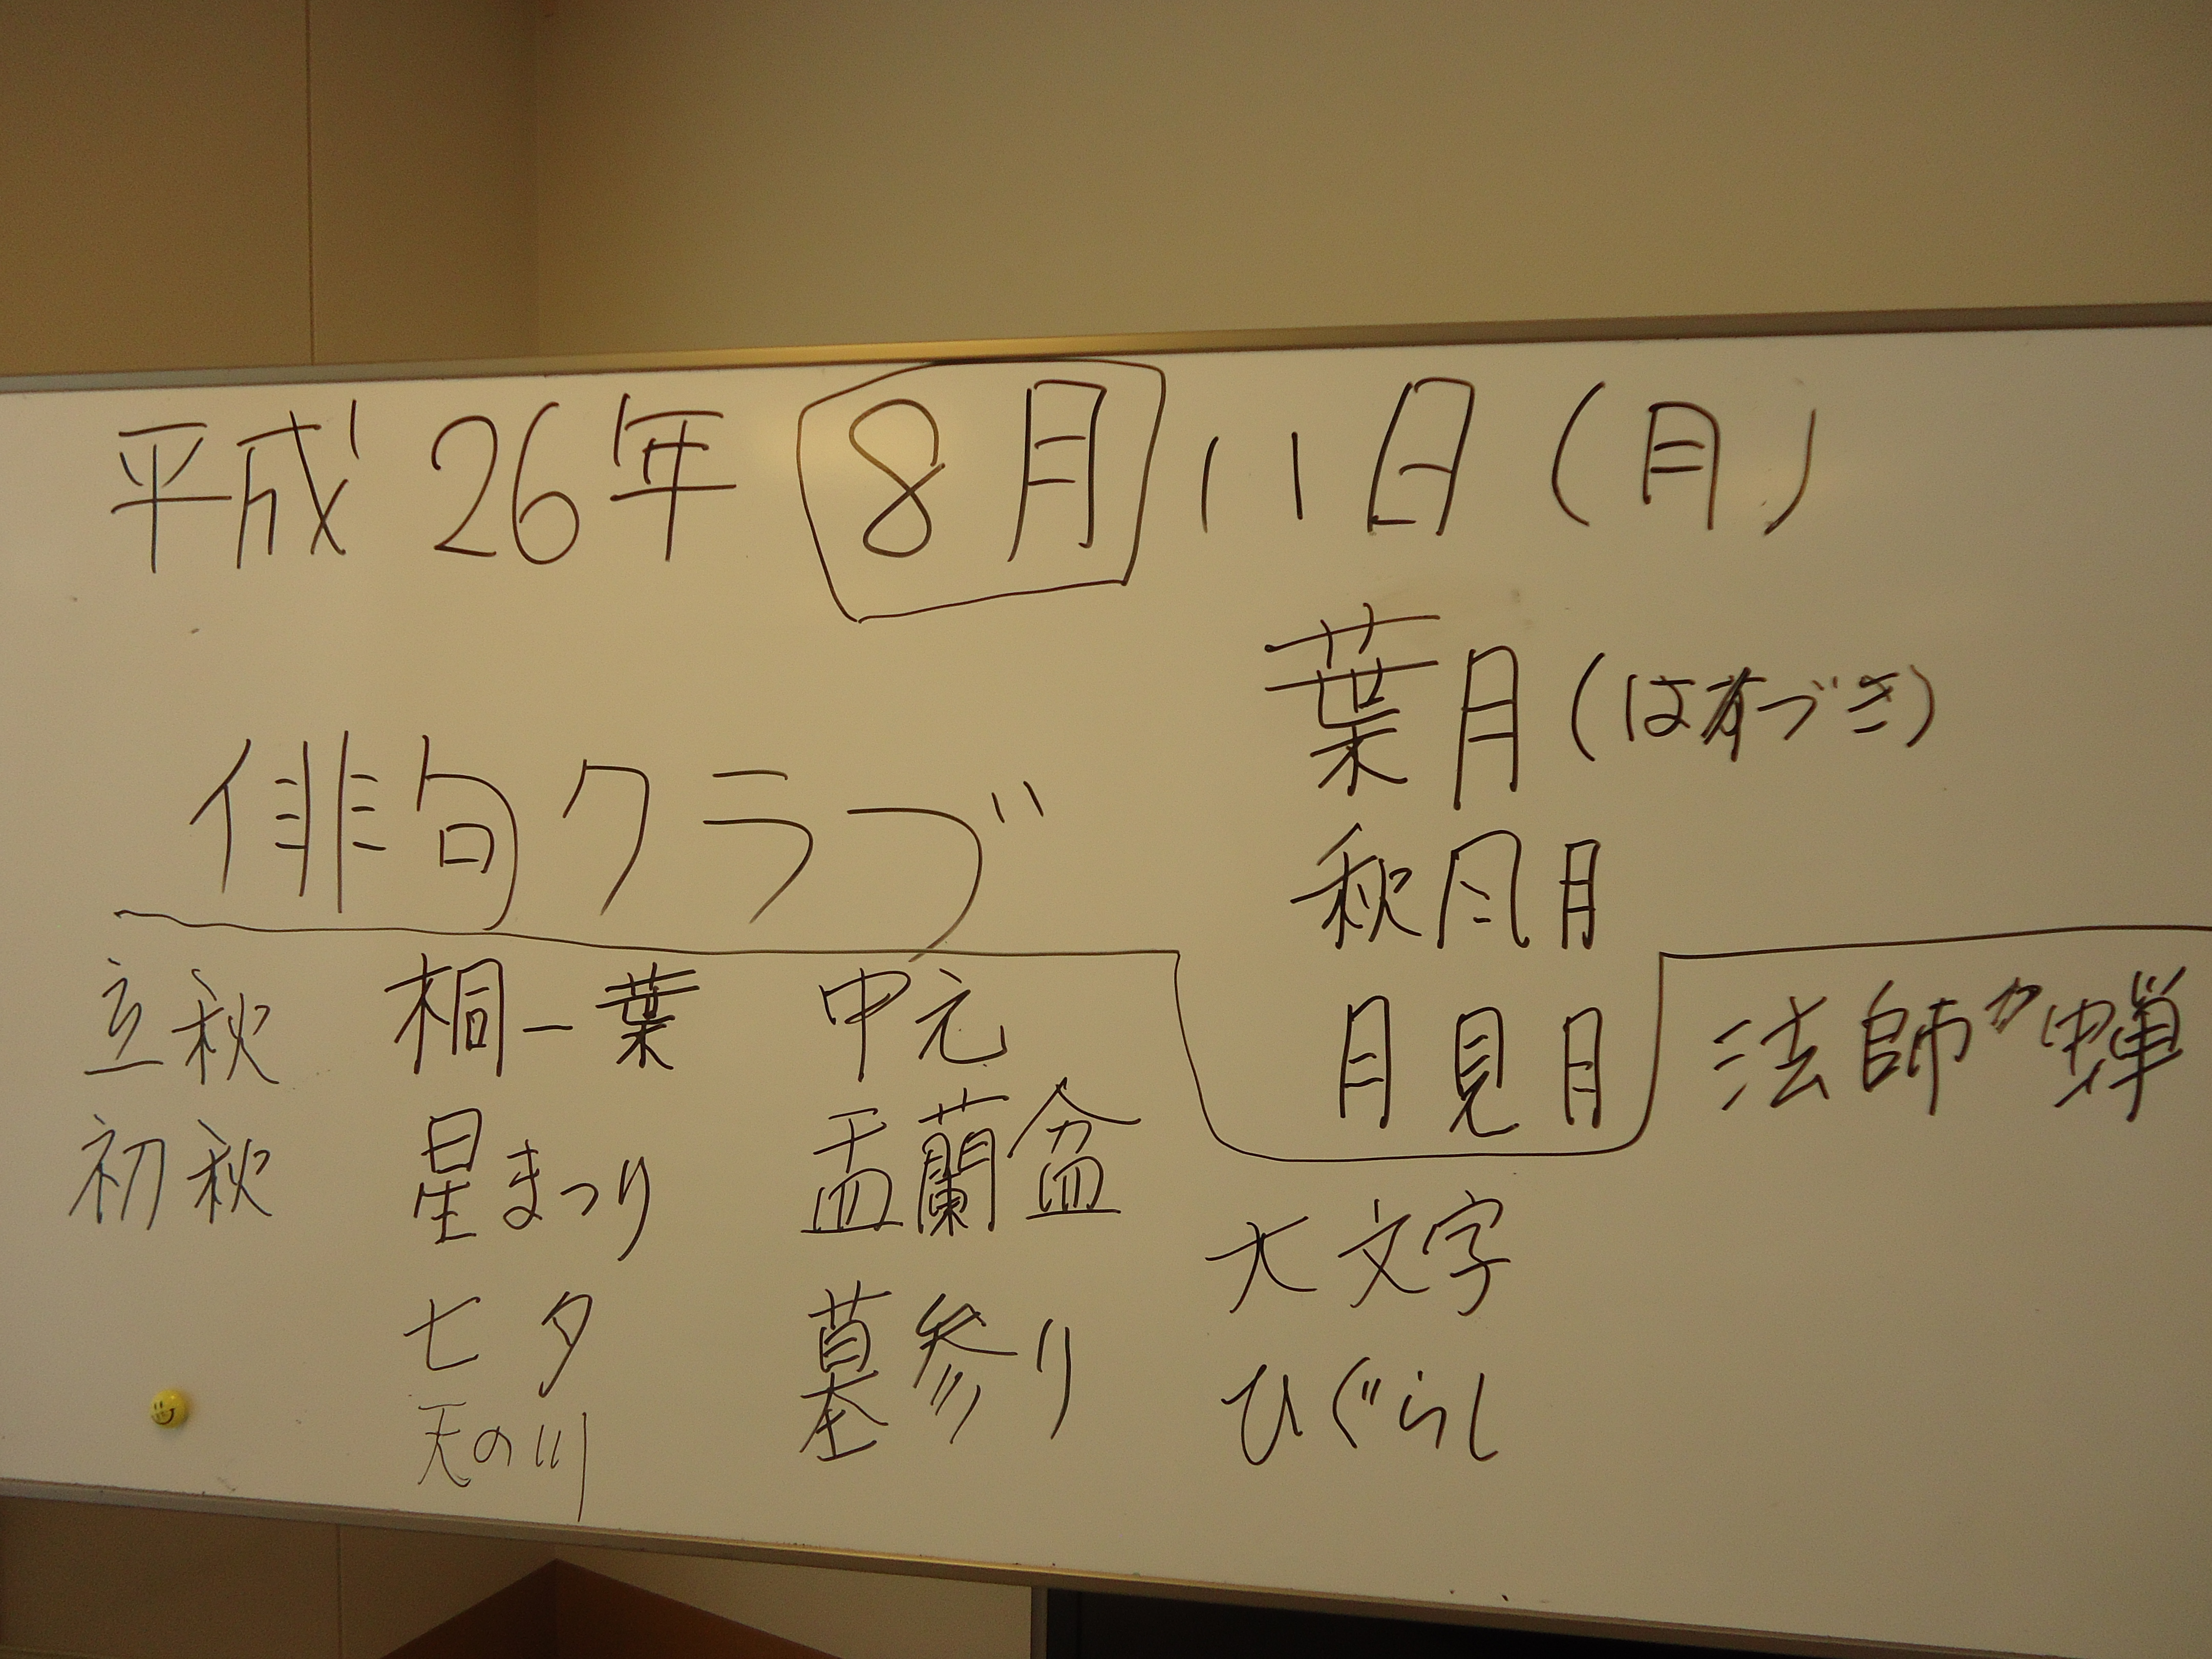 平成26年 8月 11日(月)
俳句クラブ
葉月(はづき)
秋風月
月見月
立秋
初秋
桐一葉
星まつり
七夕
天の川
中元
盂蘭盆
墓参り
大文字
ひぐらし
法師蟬